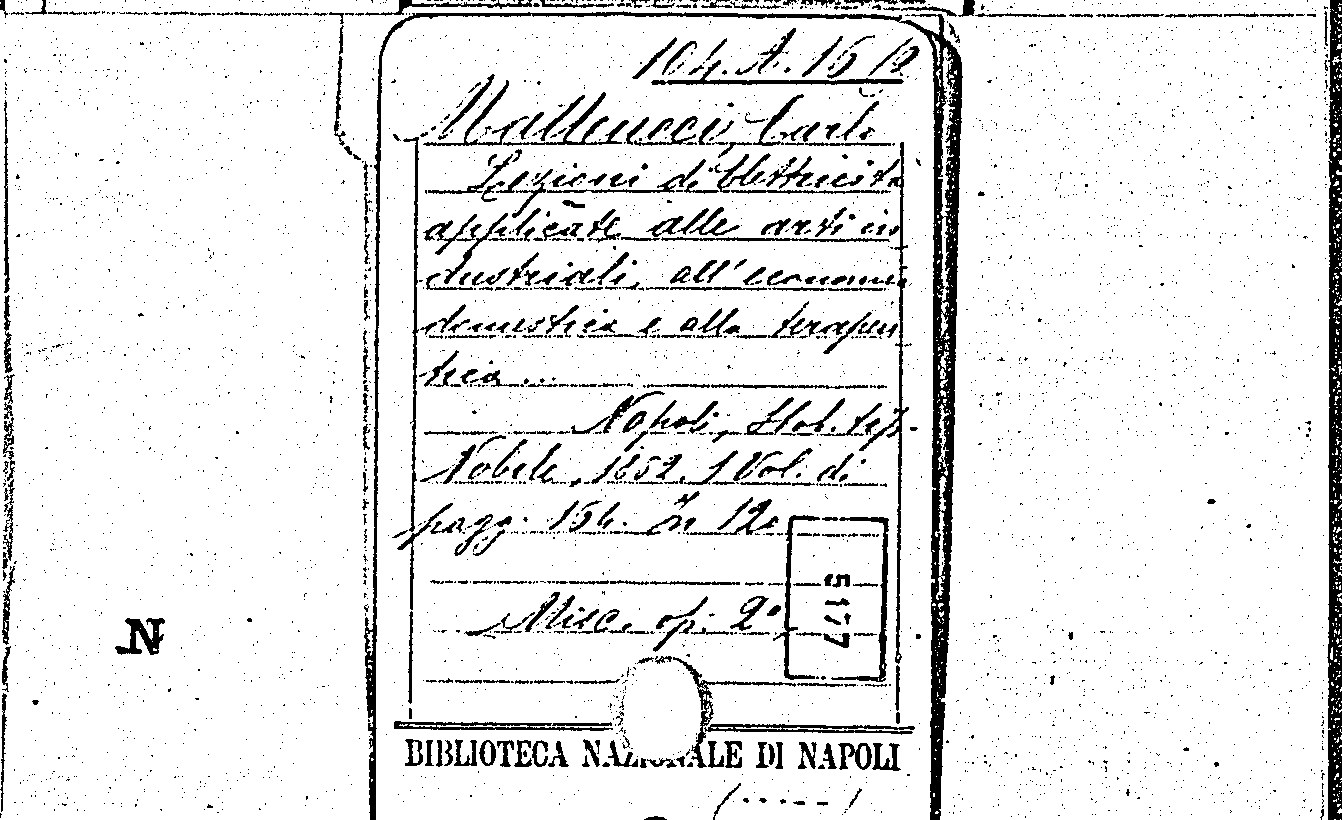 104. A. 15 12
Matteucci, Carlo
Lezioni di Elettricità
applicate alle arti in
dustriali, all'economia
domestica e alla terapeu
tica ...
Napoli, Stab. tip.
Nobile, 1852. 1 Vol. di
pagg. 154. In 12o
5177
Misc. op. 2o
N
BIBLIOTECA NAZIONALE DI NAPOLI